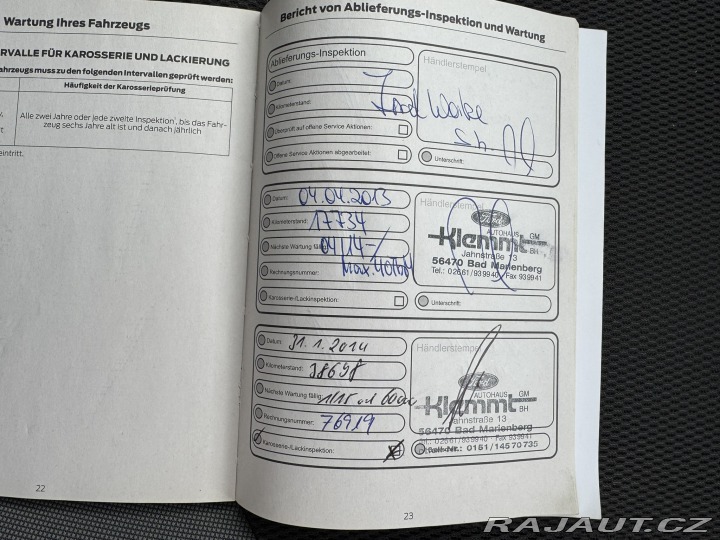 Wartung Ihres Fahrzeugs
RVALLE FÜR KAROSSERIE UND LACKIERUNG
ahrzeugs muss zu den folgenden Intervallen geprüft werden:
Häufigkeit der Karosserieprüfung
Alle zwei Jahre oder jede zweite Inspektion, bis das Fahr-
zeug sechs Jahre alt ist und danach jährlich
eintritt.
22
Bericht von Ablieferungs-Inspektion und Wartung
Ablieferungs-Inspektion
Händlerstempel
Datum:
Kilometerstand:
Überprüft auf offene Service Aktionen:
Offene Service Aktionen abgearbeitet:
Unterschrift:
Datum: 04.04.2013
Händlerstempel
Kilometerstand: 17734
Nächste Wartung fällig: 04/14-/
Rechnungsnummer:
Karosserie-/Lackinspektion:
Ford
AUTOHAUS GM
Klemmt BH
Jahnstraße 13
56470 Bad Marienberg
Tel.: 02661/939940 Fax 939941
Unterschrift:
Datum: 31.1.2014
Händlerstempel
Kilometerstand: 38698
Nächste Wartung fällig: 1/15
Rechnungsnummer: 76919
Karosserie-/Lackinspektion:
Ford
AUTOHAUS GM
Klemmt BH
Jahnstraße 13
56470 Bad Marienberg
Tel.: 02661/939940 Fax 939941
0151/14570735
23
RAJAUT.CZ